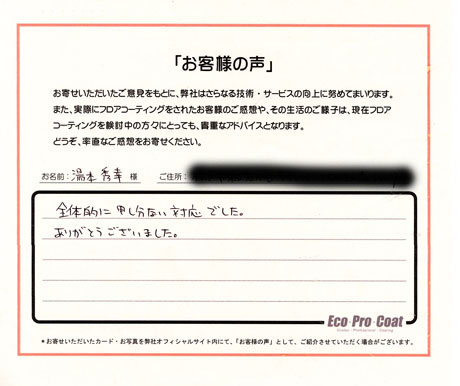 「お客様の声」
お寄せいただいたご意見をもとに、弊社はさらなる技術・サービスの向上に努めてまいります。
また、実際にフロアコーティングをされたお客様のご感想や、その生活のご様子は、現在フロア
コーティングを検討中の方々にとっても、貴重なアドバイスとなります。
どうぞ、率直なご感想をお寄せください。
お名前: 湯本 秀幸 様 ご住所:
全体的に申し分ない対応でした。
ありがとうございました。
Eco・Pro・Coat
Ecolex - Professional - Coating
*お寄せいただいたカード・お写真を弊社オフィシャルサイト内にて、「お客様の声」として、ご紹介させていただく場合がございます。